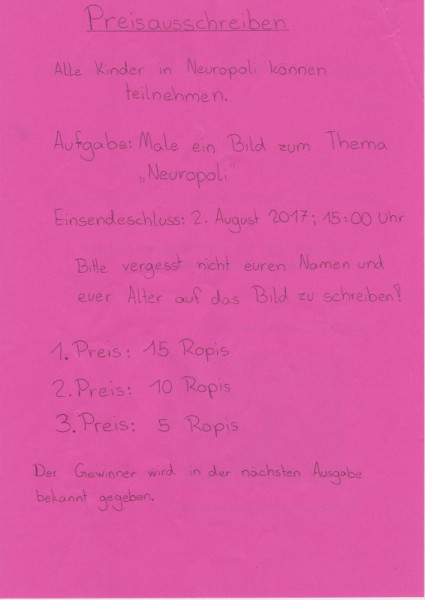 Preisausschreiben
Alle Kinder in Neuropoli können
teilnehmen.
Aufgabe: Male ein Bild zum Thema
„Neuropoli“
Einsendeschluss: 2. August 2017; 15:00 Uhr
Bitte vergesst nicht euren Namen und
euer Alter auf das Bild zu schreiben!
1. Preis: 15 Ropis
2. Preis: 10 Ropis
3. Preis: 5 Ropis
Der Gewinner wird in der nächsten Ausgabe
bekannt gegeben.